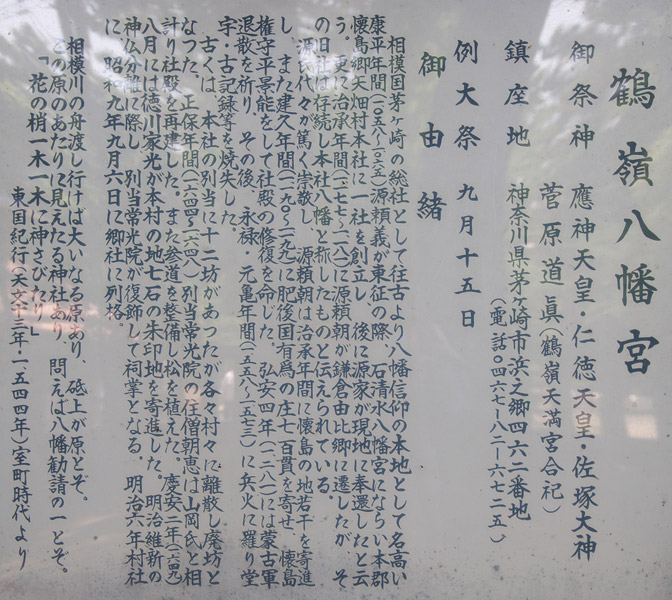 鶴嶺八幡宮
御祭神 應神天皇・仁徳天皇・佐塚大神
菅原道眞(鶴嶺天満宮合祀)
鎮座地 神奈川県茅ヶ崎市浜之郷四六二番地
(電話〇四六七-八二-六七二五)
例大祭 九月十五日
御由緒
相模国茅ヶ崎の総社として往古より八幡信仰の本地として名高い
康平年間(一〇五八〜一〇六五)源頼義が東征の際、石清水八幡宮にならい本郡
懐島郷矢畑村本社に一社を創立し、後に源家が現地に奉還したと云
う。更に治承年間(一一七七〜一一八一)に源頼朝が鎌倉由比郷に遷したが、そ
の旧社は存続し本社八幡と称したものと伝えられている。
源氏代々が篤く崇敬し、源頼朝は治承年間に懐島の地若干を寄進
し、また建久年間(一一九〇〜一一九九)に肥後国有爲の庄七百貫を寄せ、懐島
権守平景能をして社殿の修復を命じた。弘安四年(一二八一)には蒙古軍
退散を祈り、その後、永禄・元亀年間(一五五八〜一五七三)に兵火に罹り堂
宇・古記録等を焼失した。
古くは、本社の別当に十二坊があったが各々村々に離散し廃坊と
なった。正保年間(一六四四〜一六四八)別当常光院の住僧朝恵は山岡氏と相
計り社殿を再建した。また参道を整備し松を植えた。慶安二年(一六四九)
八月には徳川家光が本村の地七石の朱印地を寄進した。明治維新の
神仏分離に際し、別当常光院が復飾して祠掌となる。明治六年村社
に、昭和九年九月六日に郷社に列格。
相模川の舟渡し行けば大いなる原あり、砥上が原とぞ。
この原のあたりに見えたる神社あり、問えば八幡勧請の一とぞ。
「花の梢一木一木に神さびたり」
東国紀行(天文十三年・一五四四年)室町時代より